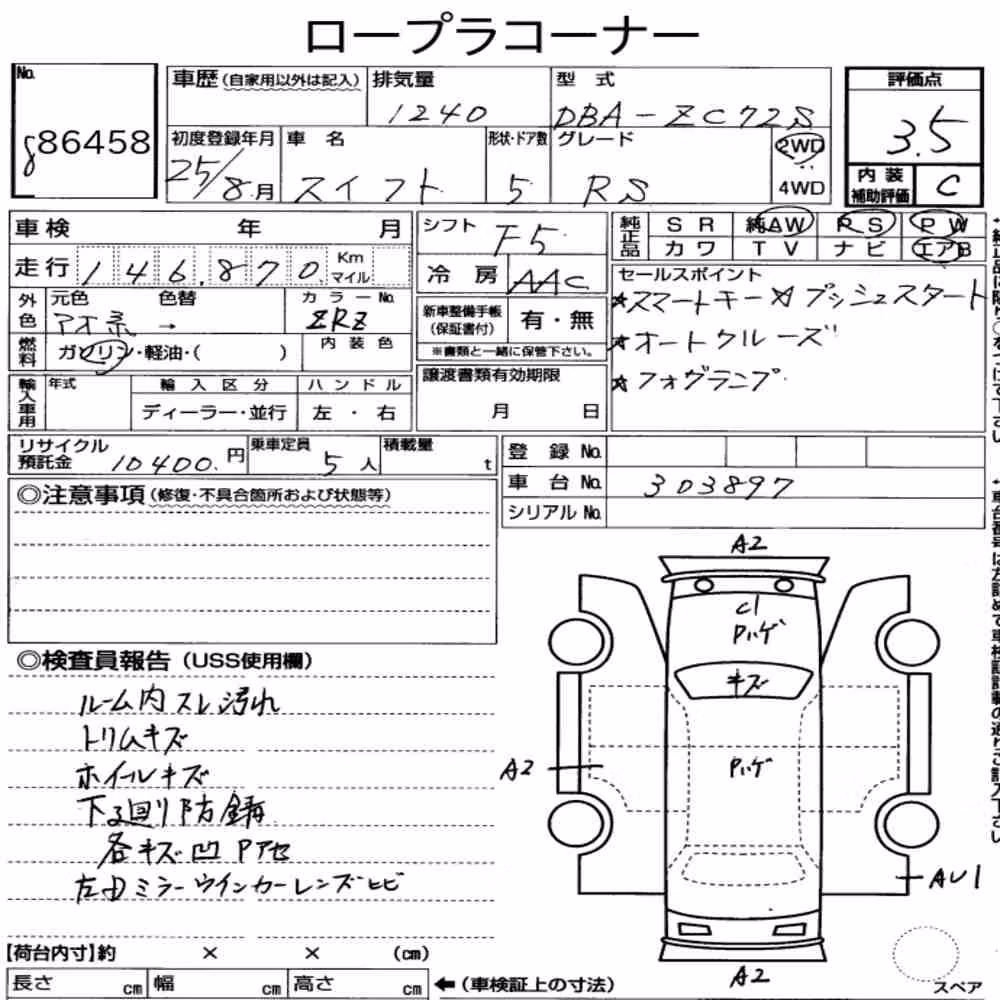 ロープラコーナー
No.
86458
車歴(自家用以外は記入)
排気量
1240
型式
DBA-ZC72S
評価点
3.5
内装補助評価
C
初度登録年月
25/8月
車名
スイフト
形状・ドア数
5
グレード
RS
2WD
4WD
車検 年 月
走行 146,870 Km マイル
シフト
F5
冷房
AAC
純正品
SR 純AW RS PW
カワ TV ナビ エアB
セールスポイント
★スマートキー ★プッシュスタート
★オートクルーズ
★フォグランプ
外色
元色 色替
アオ系 →
カラーNo.
ZRZ
燃料
ガソリン・軽油・( )
内装色
新車整備手帳
(保証書付)
有・無
※書類と一緒に保管下さい。
譲渡書類有効期限
月 日
輸入車用
年式
輸入区分
ディーラー・並行
ハンドル
左・右
リサイクル預託金 10400.円
乗車定員
5人
積載量
t
登録No.
車台No. 303897
シリアルNo.
◎注意事項(修復・不具合箇所および状態等)
◎検査員報告(USS使用欄)
ルーム内スレ汚れ
トリムキズ
ホイールキズ
下廻り防錆
各キズ凹Pアセ
左ミラーウインカーレンズヒビ
A2
C1
Pハゲ
キズ
A2
Pハゲ
AU1
A2
スペア
【荷台内寸】約 × × (cm)
長さ cm 幅 cm 高さ cm
←(車検証上の寸法)